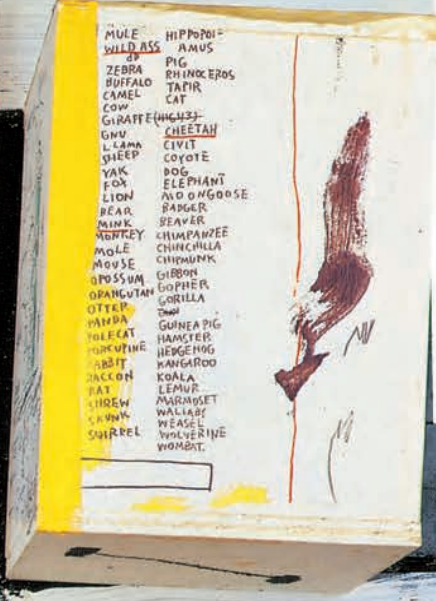 MULE
WILD ASS
ZEBRA
BUFFALO
CAMEL
COW
GIRAFFE
GNU
LLAMA
SHEEP
YAK
FOX
LION
BEAR
MINK
MONKEY
MOLE
MOUSE
OPOSSUM
ORANGUTAN
OTTER
PANDA
POLECAT
PORCUPINE
RABBIT
RACCON
RAT
SHREW
SKUNK
SQUIRREL
HIPPOPOT-
AMUS
PIG
RHINOCEROS
TAPIR
CAT
CHEETAH
CIVIT
COYOTE
DOG
ELEPHANT
MOONGOOSE
BADGER
BEAVER
CHIMPANZEE
CHINCHILLA
CHIPMUNK
GIBBON
GOPHER
GORILLA
GUINEA PIG
HAMSTER
HEDGEHOG
KANGAROO
KOALA
LEMUR
MARMOSET
WALLABY
WEASEL
WOLVERINE
WOMBAT.